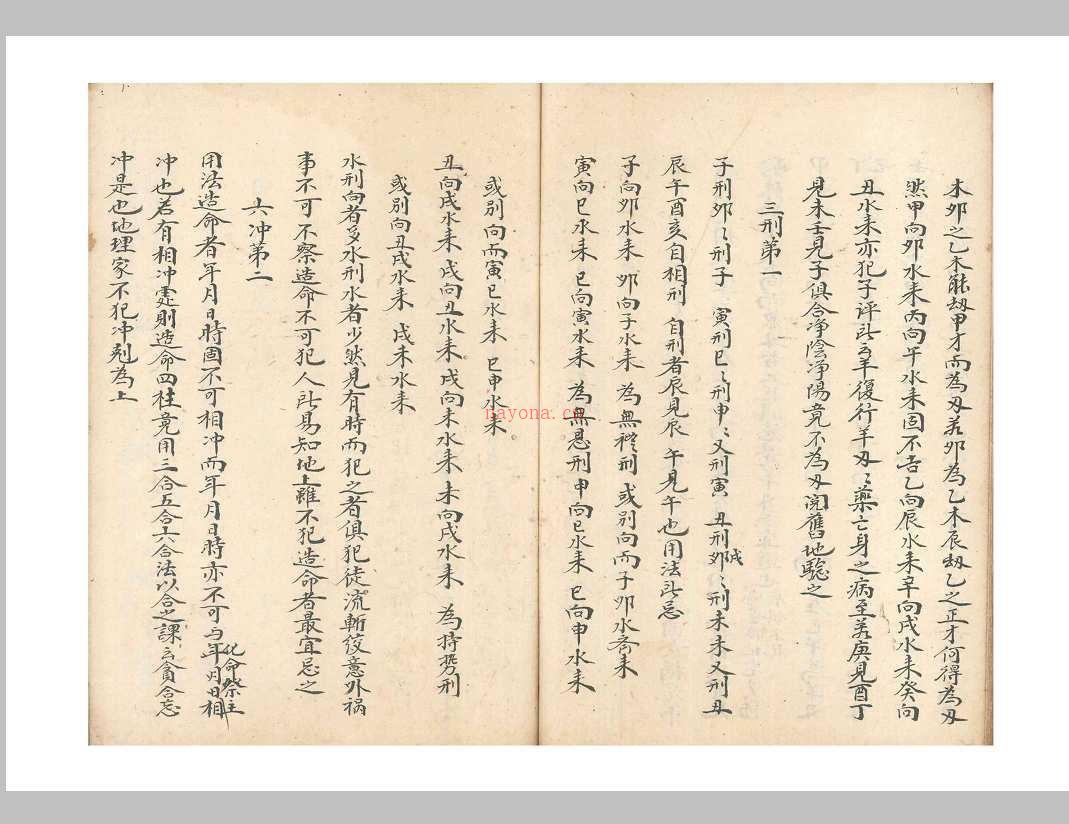 木卯之乙木能刼甲才而為刃若卯為乙木辰刼乙之正才何得為刃
然甲向卯水来丙向午水来固不吉乙向辰水来辛向戌水来癸向
丑水来亦犯子评此云羊復行羊刃〻藥亡身之病至若庚見酉丁
見未壬見子俱合净陰净陽竟不為刃阅舊地騐之
三刑第一
子刑卯〻刑子 寅刑巳〻刑申〻又刑寅 丑刑戌〻刑未未又刑丑
辰午酉亥自相刑 自刑者辰見辰 午見午也用法此忌
子向卯水来 卯向子水来 為無禮刑 或别向而子卯水齐来
寅向巳水来 巳向寅水来 為無恩刑申向巳水来 巳向申水来
或别向而寅巳水来 巳申水来
丑向戌水来 戌向丑水来 戌向未水来 未向戌水来 為持势刑
或别向丑戌水来 戌未水来
水刑向者多水刑水者少然見有時而犯之者俱犯徒流斬绞意外禍
事不可不察造命不可犯人所易知地上雖不犯造命者最宜忌之
六冲第二
用法造命者年月日時固不可相冲而年月日時亦不可与年月日相
化命祭主
冲也若有相冲處則造命四柱竟用三合五合六合法以合之課云貪合忘
冲是也地理家不犯冲剋為上
nayona.cn